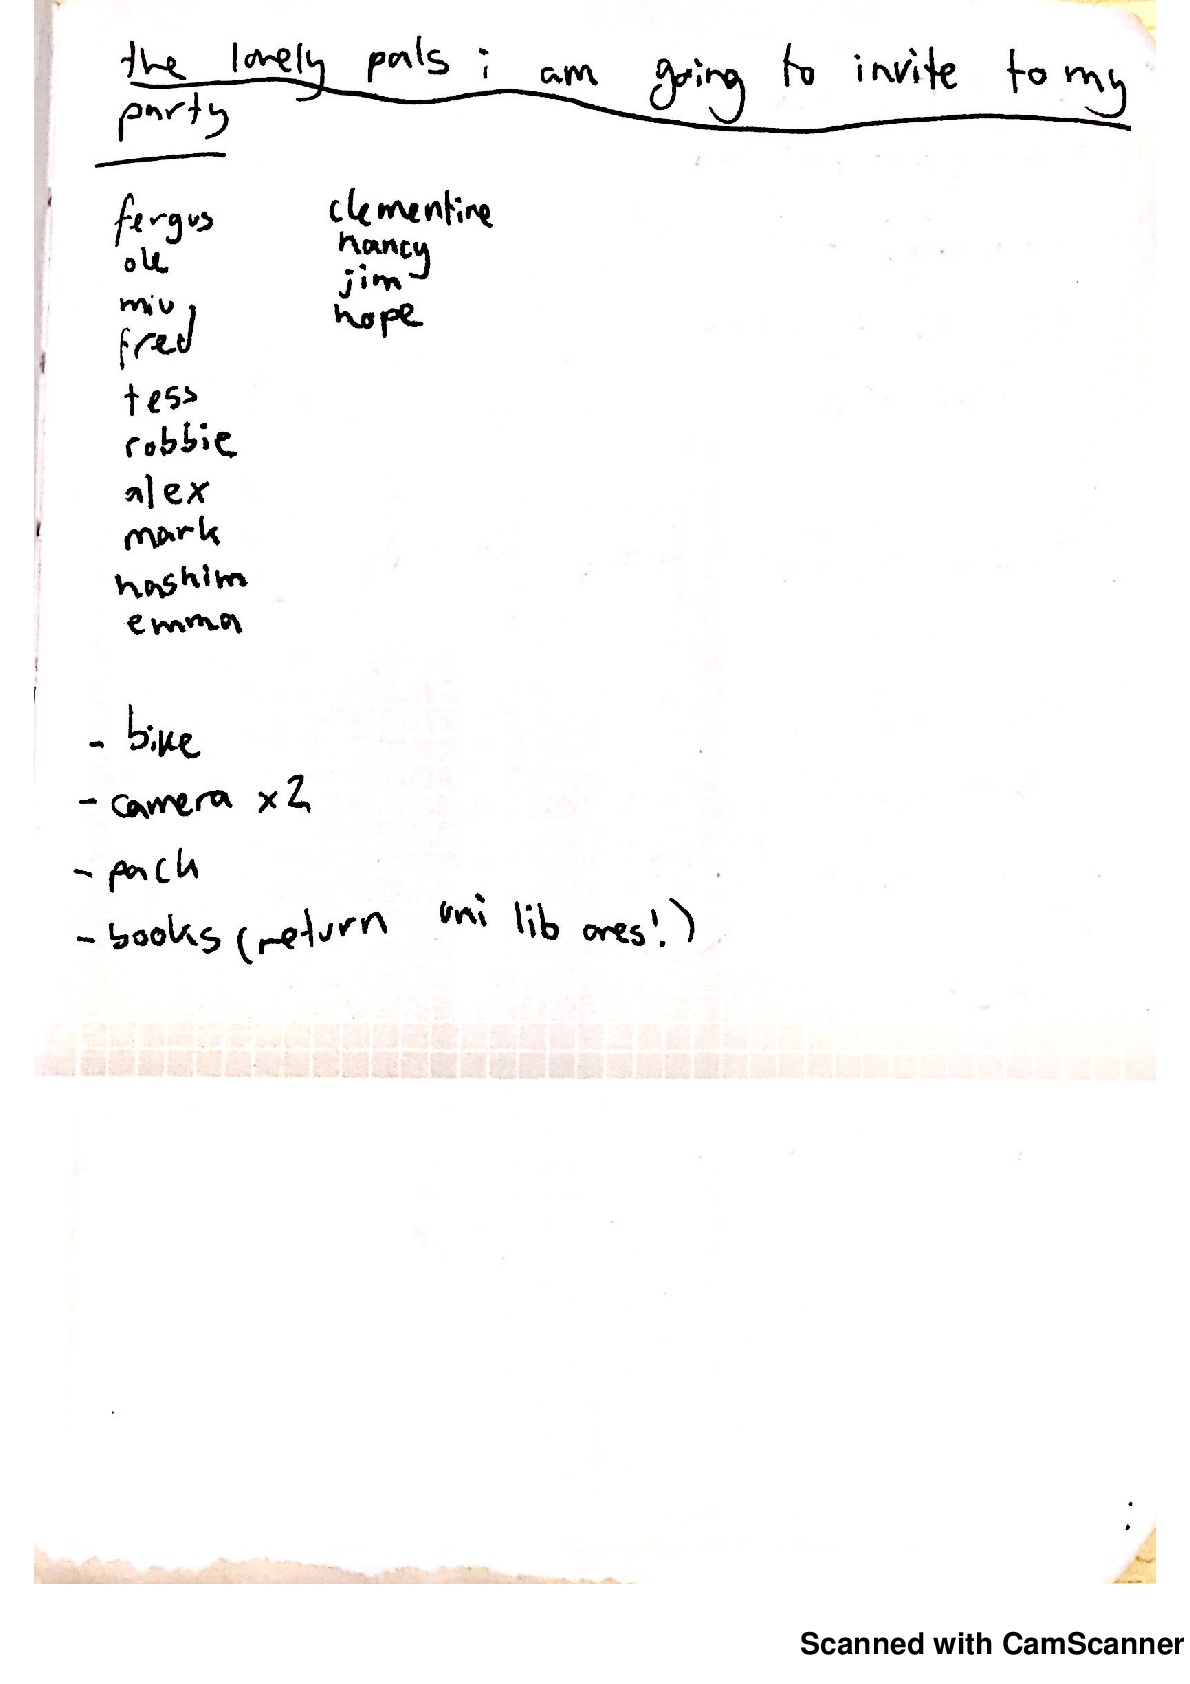 the lonely pals i am going to invite to my
party
fergus
ole
miv
fred
tess
robbie
alex
mark
hashim
emma
clementine
nancy
jim
hope
- bike
- camera x2
- pack
- books (return uni lib ones!)
Scanned with CamScanner